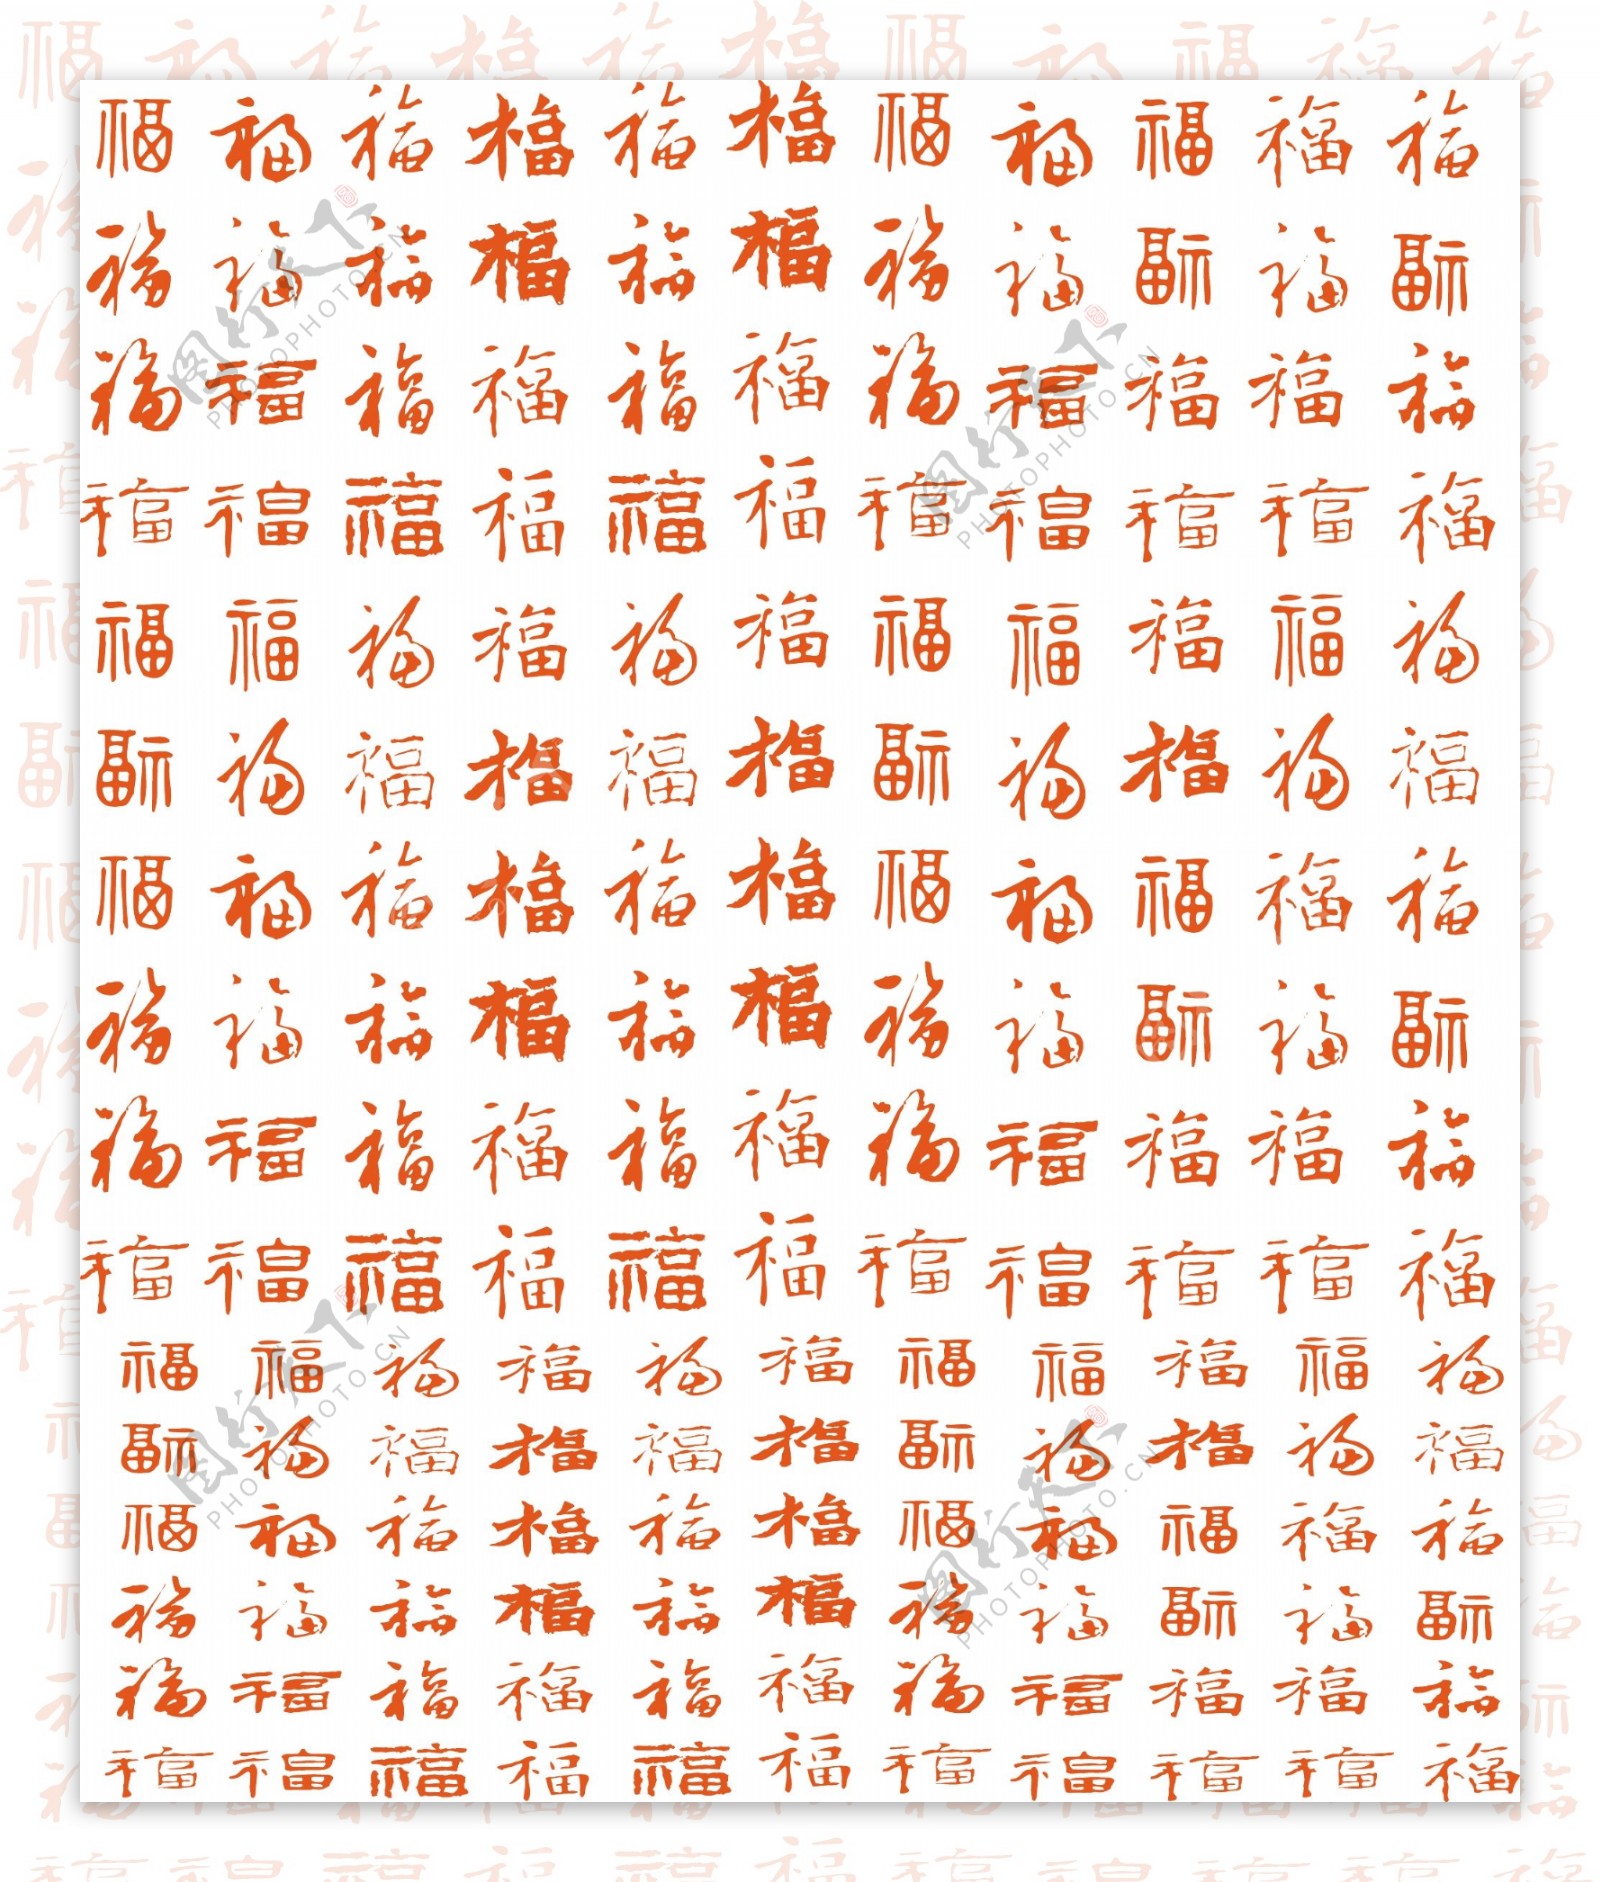 福福福福福福福福福福福
福福福福福福福福福福福
福福福福福福福福福福福
福福福福福福福福福福福
福福福福福福福福福福福
福福福福福福福福福福福
福福福福福福福福福福福
福福福福福福福福福福福
福福福福福福福福福福福
福福福福福福福福福福福
福福福福福福福福福福福
福福福福福福福福福福福
福福福福福福福福福福福
福福福福福福福福福福福
福福福福福福福福福福福
福福福福福福福福福福福
图行天下
PHOTOPHOTO.CN
图行天下
PHOTOPHOTO.CN
图行天下
PHOTOPHOTO.CN
图行天下
PHOTOPHOTO.CN